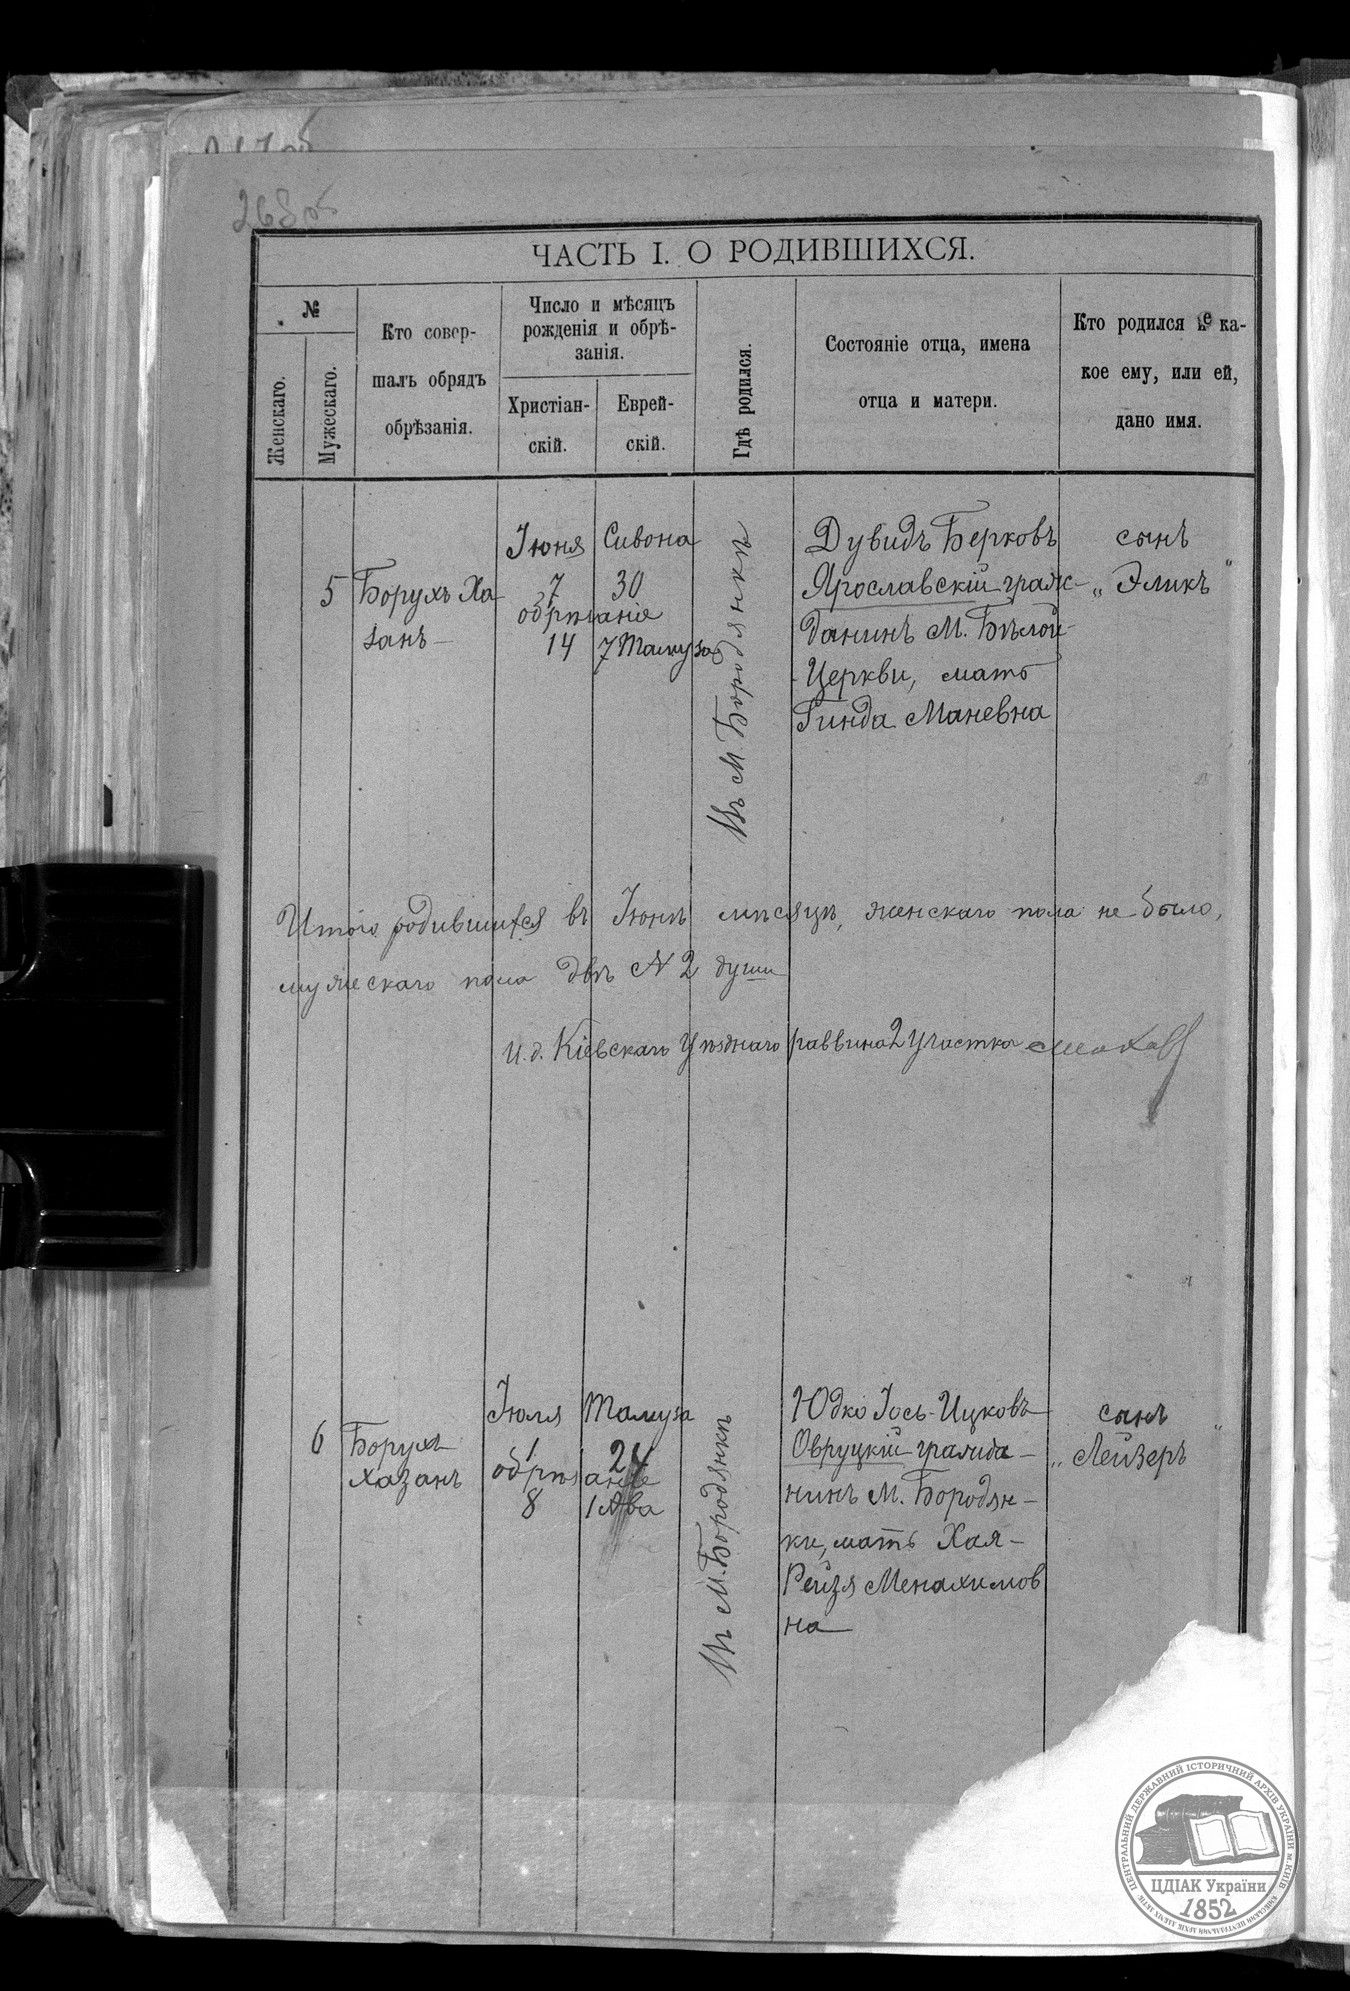 268 об
ЧАСТЬ I. О РОДИВШИХСЯ.
№
Женскаго.
Мужескаго.
Кто совер-
шалъ обрядъ
обрѣзанія.
Число и мѣсяцъ
рожденія и обрѣ-
занія.
Христіан-
скій.
Еврей-
скій.
Гдѣ родился.
Состояніе отца, имена
отца и матери.
Кто родился и ка-
кое ему, или ей,
дано имя.
5
Борухъ Ха
занъ
Іюня
7
обрѣзаніе
14
Сивона
30
7 Тамуза
Въ М. Бородянкѣ
Дувидъ Берковъ
Ярославскій граж-
данинъ М. Бѣлой-
Церкви, мать
Гинда Маневна
сынъ
„ Эликъ "
Итого родившихся въ Іюнѣ мѣсяцѣ, женскаго пола не было,
мужескаго пола двѣ № 2 души
И.д. Кіевскаго Уѣзднаго раввина 2 Участка
6
Борухъ
Хазанъ
Іюля
1
обрѣзаніе
8
Тамуза
24
1 Ава
Въ М. Бородянкѣ
Юдко Іось-Ицковъ
Овруцкій гражда-
нинъ М. Бородян-
ки, мать Хая-
Рейзя Менахимов
на
сынъ
„ Лейзеръ "
ЦЕНТРАЛЬНИЙ ДЕРЖАВНИЙ ІСТОРИЧНИЙ АРХІВ УКРАЇНИ м. КИЇВ
ЦДІАК України
1852